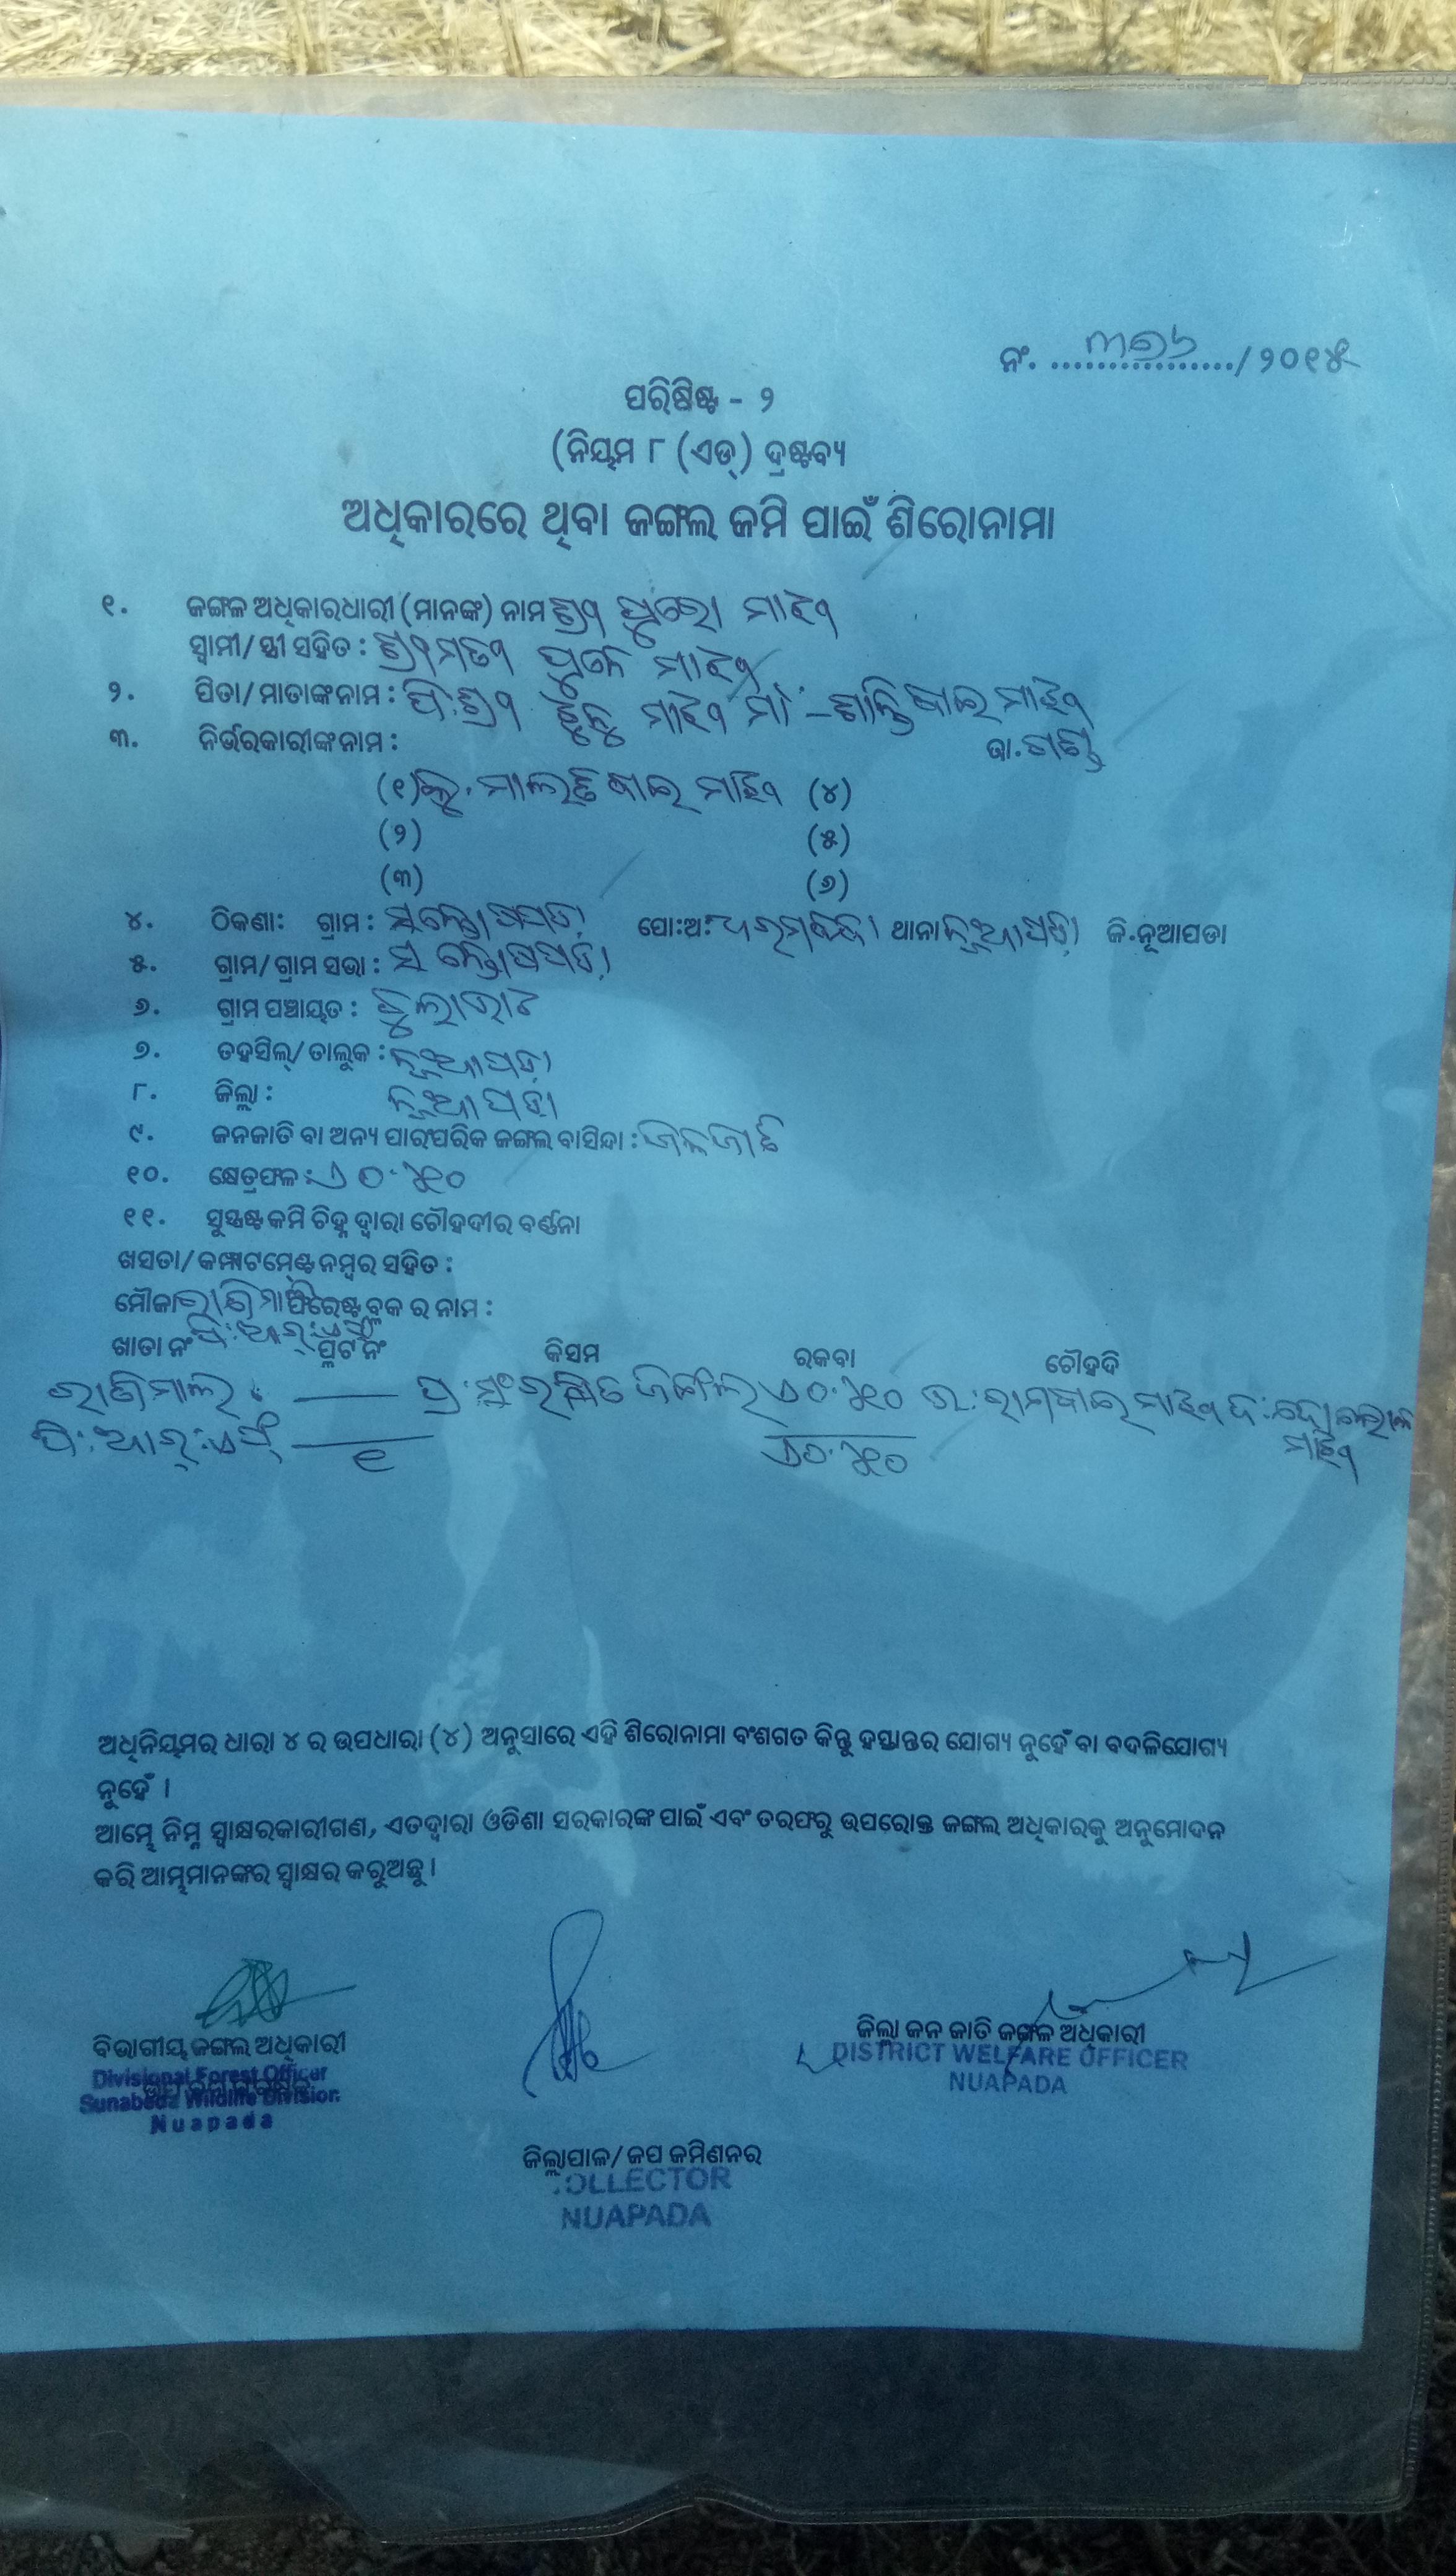 ନଂ. ୩୭୬ / ୨୦୧୫
ପରିଷିଷ୍ଟ - ୨
(ନିୟମ ୮ (ଏଚ୍) ଦ୍ରଷ୍ଟବ୍ୟ
ଅଧିକାରରେ ଥିବା ଜଙ୍ଗଲ ଜମି ପାଇଁ ଶିରୋନାମା
୧. ଜଙ୍ଗଳ ଅଧିକାରଧାରୀ (ମାନଙ୍କ) ନାମ ଶ୍ରୀ ମାଝୀ
ସ୍ଵାମୀ/ ସ୍ତ୍ରୀ ସହିତ : ଶ୍ରୀମତୀ ମାଝୀ
୨. ପିତା/ ମାତାଙ୍କ ନାମ : ପି:ଶ୍ରୀ ମାଝୀ ମାଁ - ଶାନ୍ତି ବାଇ ମାଝୀ
୩. ନିର୍ଭରକାରୀଙ୍କ ନାମ : ଜା. ଗଣ୍ଡ
(୧) କୁ. ମାଲତି ବାଇ ମାଝୀ (୪)
(୨) (୫)
(୩) (୬)
୪. ଠିକଣା: ଗ୍ରାମ : ସନ୍ତୋଷପଡ଼ା ପୋ:ଅ: ଧରମବନ୍ଧା ଥାନା ନୂଆପଡ଼ା ଜି.ନୂଆପଡା
୫. ଗ୍ରାମ/ ଗ୍ରାମ ସଭା : ସନ୍ତୋଷପଡ଼ା
୬. ଗ୍ରାମ ପଞ୍ଚାୟତ :
୭. ତହସିଲ୍/ ତାଲୁକ : ନୂଆପଡ଼ା
୮. ଜିଲ୍ଲା : ନୂଆପଡ଼ା
୯. ଜନଜାତି ବା ଅନ୍ୟ ପାରଂପରିକ ଜଙ୍ଗଲ ବାସିନ୍ଦା : ଜନଜାତି
୧୦. କ୍ଷେତ୍ରଫଳ : ଏ ୦.୬୧୦
୧୧. ସୁସ୍ପଷ୍ଟ ଜମି ଚିହ୍ନ ଦ୍ଵାରା ଚୌହଦୀର ବର୍ଣ୍ଣନା
ଖସଡା/ କମ୍ପାଟମେଣ୍ଟ ନମ୍ବର ସହିତ :
ମୌଜା ରାଣିମାଲ ଫରେଷ୍ଟ ବ୍ଲକ ର ନାମ :
ପି:ଆର୍:ଏଫ୍
ଖାତା ନଂ ପ୍ଲଟ ନଂ କିସମ ରକବା ଚୌହଦି
ରାଣିମାଲ : — ପ୍ର: ସଂରକ୍ଷିତ ଜଙ୍ଗଲ ଏ ୦.୬୧୦ ଉ: ରାମବାଇ ମାଝୀ ଦ:
ପି:ଆର୍:ଏଫ୍ ୧ ଏ୦.୬୧୦ ମାଝୀ
ଅଧିନିୟମର ଧାରା ୪ ର ଉପଧାରା (୪) ଅନୁସାରେ ଏହି ଶିରୋନାମା ବଂଶଗତ କିନ୍ତୁ ହସ୍ତାନ୍ତର ଯୋଗ୍ୟ ନୁହେଁ ବା ବଦଳିଯୋଗ୍ୟ
ନୁହେଁ ।
ଆମ୍ଭେ ନିମ୍ନ ସ୍ଵାକ୍ଷରକାରୀଗଣ, ଏତଦ୍ଵାରା ଓଡିଶା ସରକାରଙ୍କ ପାଇଁ ଏବଂ ତରଫରୁ ଉପରୋକ୍ତ ଜଙ୍ଗଲ ଅଧିକାରକୁ ଅନୁମୋଦନ
କରି ଆମ୍ଭମାନଙ୍କର ସ୍ଵାକ୍ଷର କରୁଅଛୁ ।
ବିଭାଗୀୟ ଜଙ୍ଗଲ ଅଧିକାରୀ
Divisional Forest Officer
Sunabeda Wildlife Division
Nuapada
ଜିଲ୍ଲା ଜନ ଜାତି ଜଙ୍ଗଳ ଅଧିକାରୀ
DISTRICT WELFARE OFFICER
NUAPADA
ଜିଲ୍ଲାପାଳ/ ଜପ କମିଶନର
COLLECTOR
NUAPADA